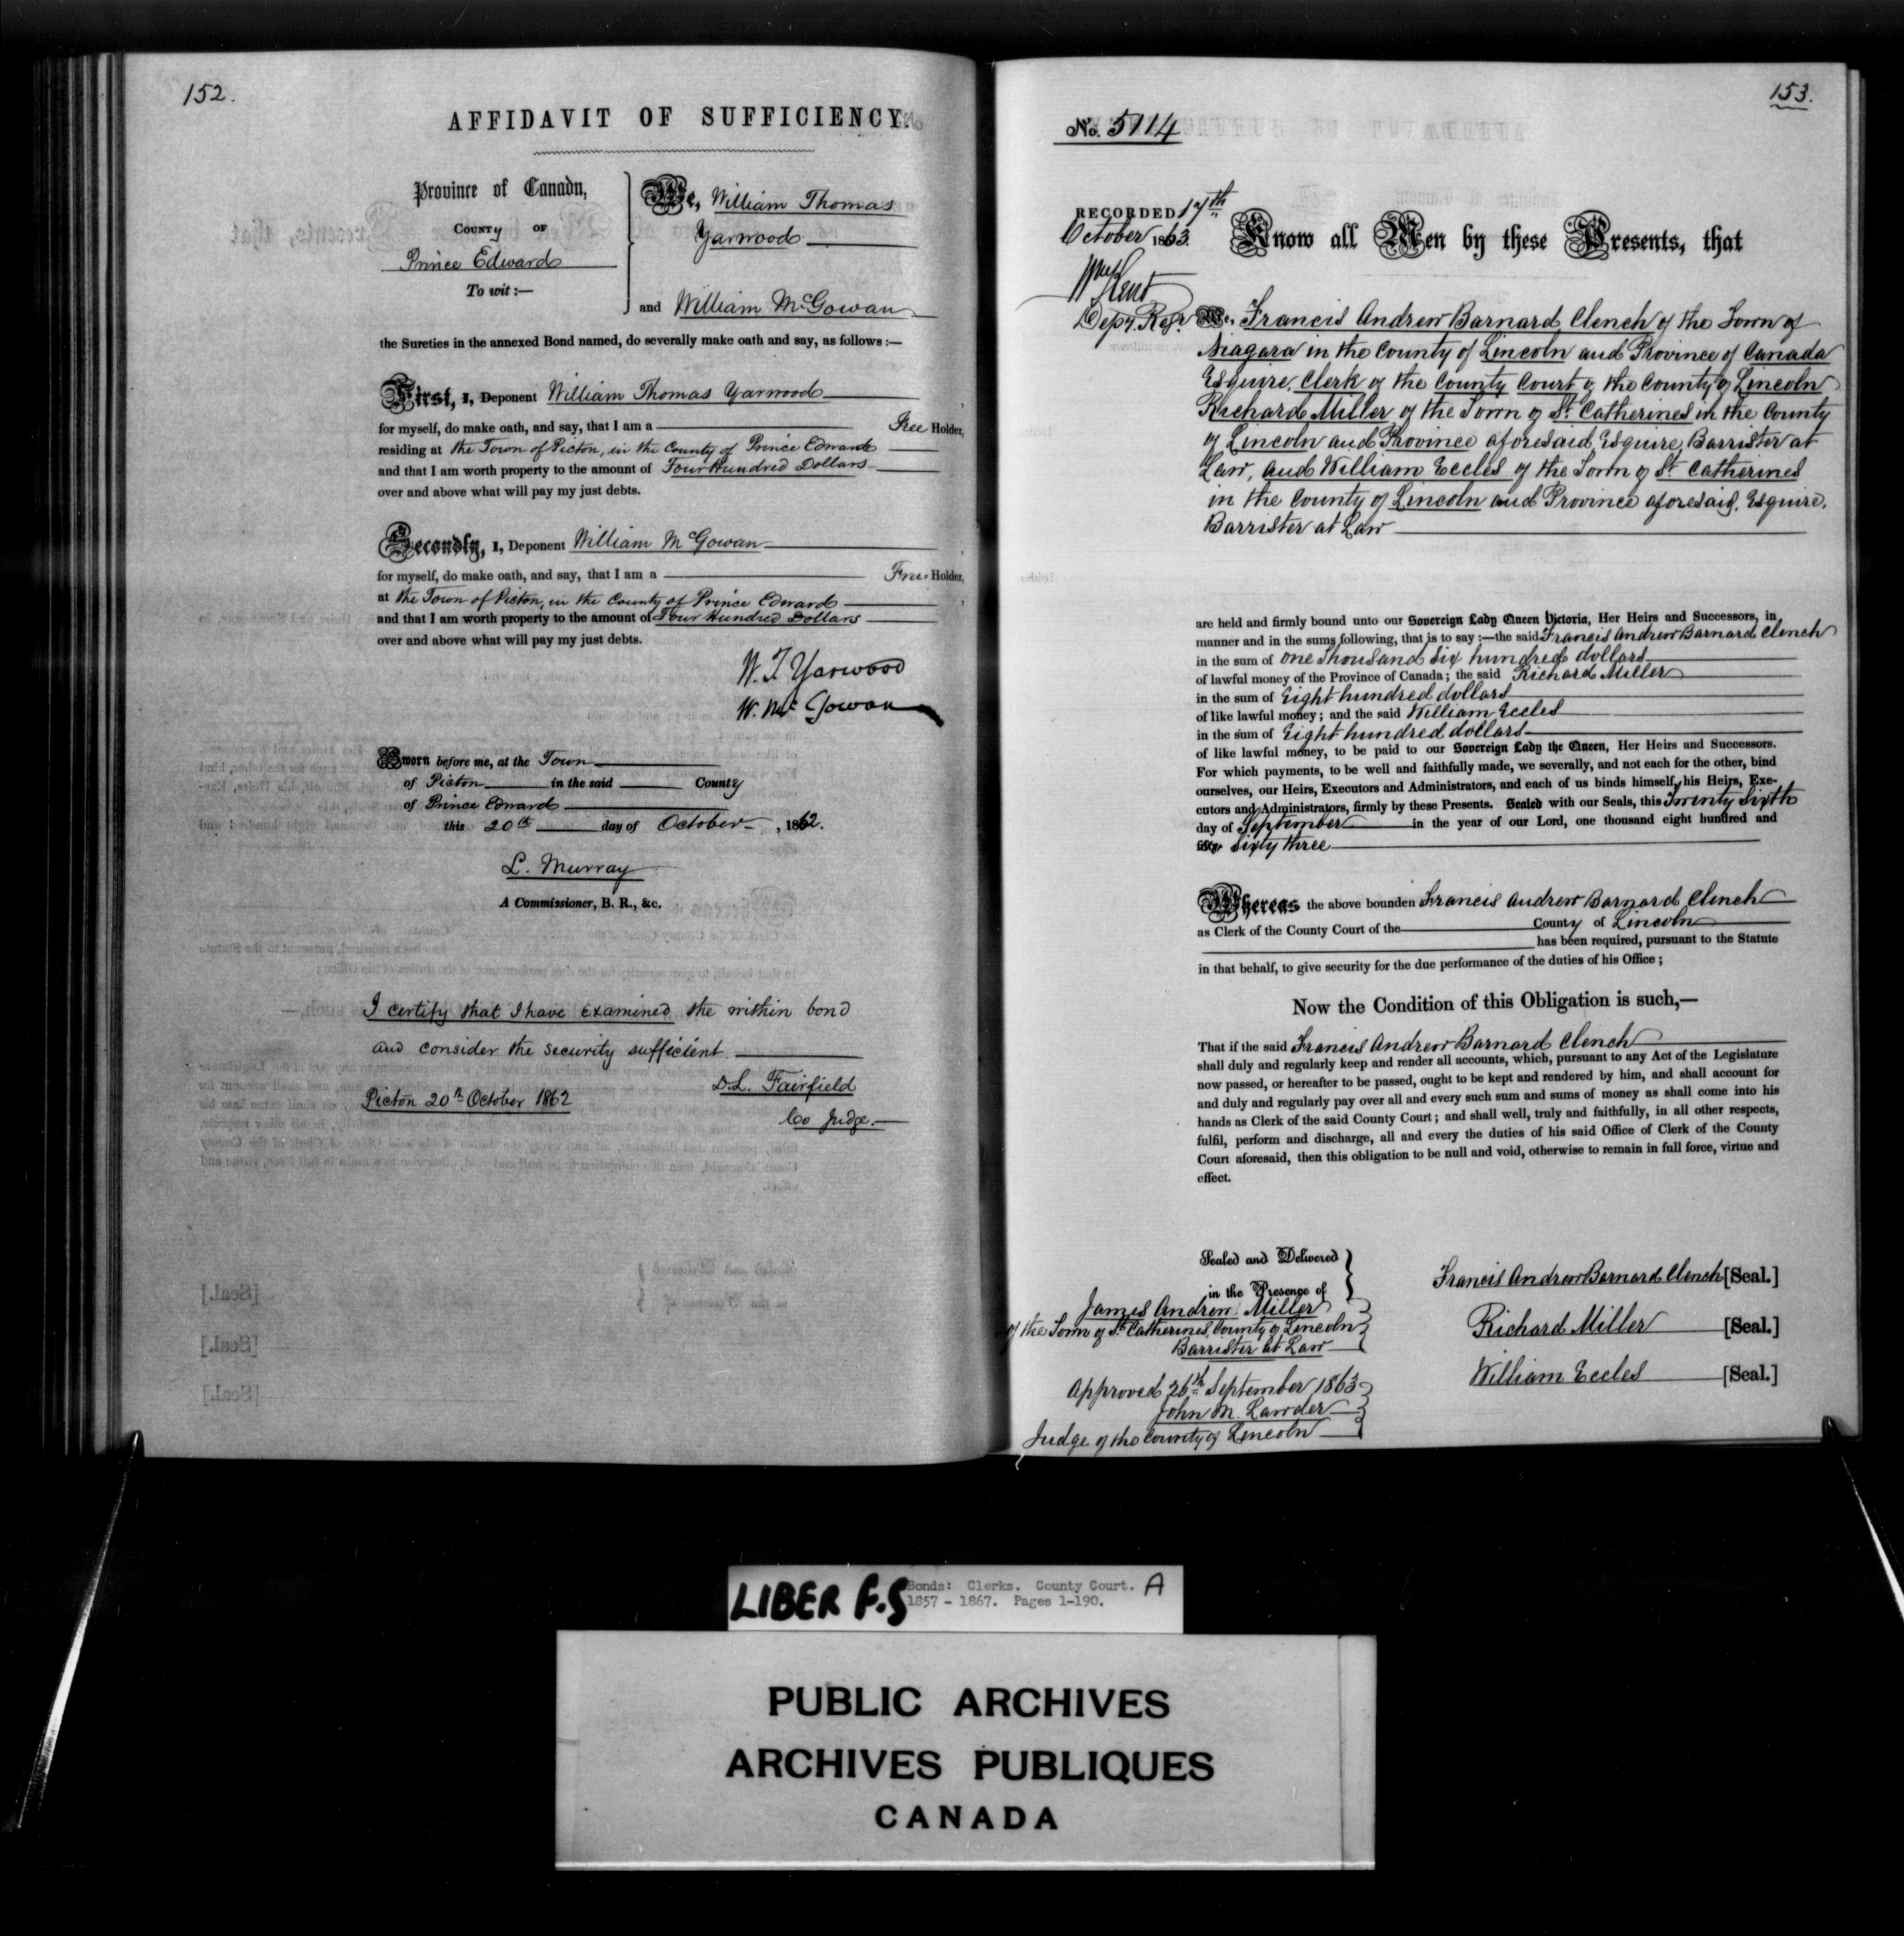 152.
AFFIDAVIT OF SUFFICIENCY.
Province of Canada,
COUNTY OF
Prince Edward
To wit:—
We, William Thomas
Yarwood
and William McGowan
the Sureties in the annexed Bond named, do severally make oath and say, as follows:—
First, I, Deponent William Thomas Yarwood
for myself, do make oath, and say, that I am a Free Holder,
residing at the Town of Picton, in the County of Prince Edward
and that I am worth property to the amount of Four Hundred Dollars
over and above what will pay my just debts.
Secondly, I, Deponent William McGowan
for myself, do make oath, and say, that I am a Free Holder,
at the Town of Picton, in the County of Prince Edward
and that I am worth property to the amount of Four Hundred Dollars
over and above what will pay my just debts.
W. T. Yarwood
W. McGowan
Sworn before me, at the Town
of Picton in the said County
of Prince Edward
this 20th day of October, 1862.
L. Murray
A Commissioner, B. R., &c.
I certify that I have examined the within bond
and consider the security sufficient.
D. L. Fairfield
Picton 20th October 1862
Co Judge.
153.
No. 5114
RECORDED 17th
October 1863.
Wm Kent
Depy. Regr.
Know all Men by these Presents, that
We, Francis Andrew Barnard Clench of the Town of
Niagara in the County of Lincoln and Province of Canada
Esquire, Clerk of the County Court of the County of Lincoln
Richard Miller of the Town of St. Catherines in the County
of Lincoln and Province aforesaid, Esquire, Barrister at
Law, and William Eccles of the Town of St. Catherines
in the County of Lincoln and Province aforesaid, Esquire,
Barrister at Law
are held and firmly bound unto our Sovereign Lady Queen Victoria, Her Heirs and Successors, in
manner and in the sums following, that is to say:—the said Francis Andrew Barnard Clench
in the sum of One Thousand Six hundred dollars
of lawful money of the Province of Canada; the said Richard Miller
in the sum of Eight hundred dollars
of like lawful money; and the said William Eccles
in the sum of Eight hundred dollars
of like lawful money, to be paid to our Sovereign Lady the Queen, Her Heirs and Successors.
For which payments, to be well and faithfully made, we severally, and not each for the other, bind
ourselves, our Heirs, Executors and Administrators, and each of us binds himself, his Heirs, Exe-
cutors and Administrators, firmly by these Presents. Sealed with our Seals, this Twenty Sixth
day of September in the year of our Lord, one thousand eight hundred and
fifty Sixty three
Whereas the above bounden Francis Andrew Barnard Clench
as Clerk of the County Court of the County of Lincoln
has been required, pursuant to the Statute
in that behalf, to give security for the due performance of the duties of his Office;
Now the Condition of this Obligation is such,—
That if the said Francis Andrew Barnard Clench
shall duly and regularly keep and render all accounts, which, pursuant to any Act of the Legislature
now passed, or hereafter to be passed, ought to be kept and rendered by him, and shall account for
and duly and regularly pay over all and every such sum and sums of money as shall come into his
hands as Clerk of the said County Court; and shall well, truly and faithfully, in all other respects,
fulfil, perform and discharge, all and every the duties of his said Office of Clerk of the County
Court aforesaid, then this obligation to be null and void, otherwise to remain in full force, virtue and
effect.
Sealed and Delivered
in the Presence of
James Andrew Miller
of the Town of St. Catherines, County of Lincoln
Barrister at Law
Approved 26th September 1863
John M. Lawder
Judge of the County of Lincoln
Francis Andrew Barnard Clench [Seal.]
Richard Miller [Seal.]
William Eccles [Seal.]
LIBER F.S
Bonds: Clerks. County Court. A
1857 - 1867. Pages 1-190.
PUBLIC ARCHIVES
ARCHIVES PUBLIQUES
CANADA